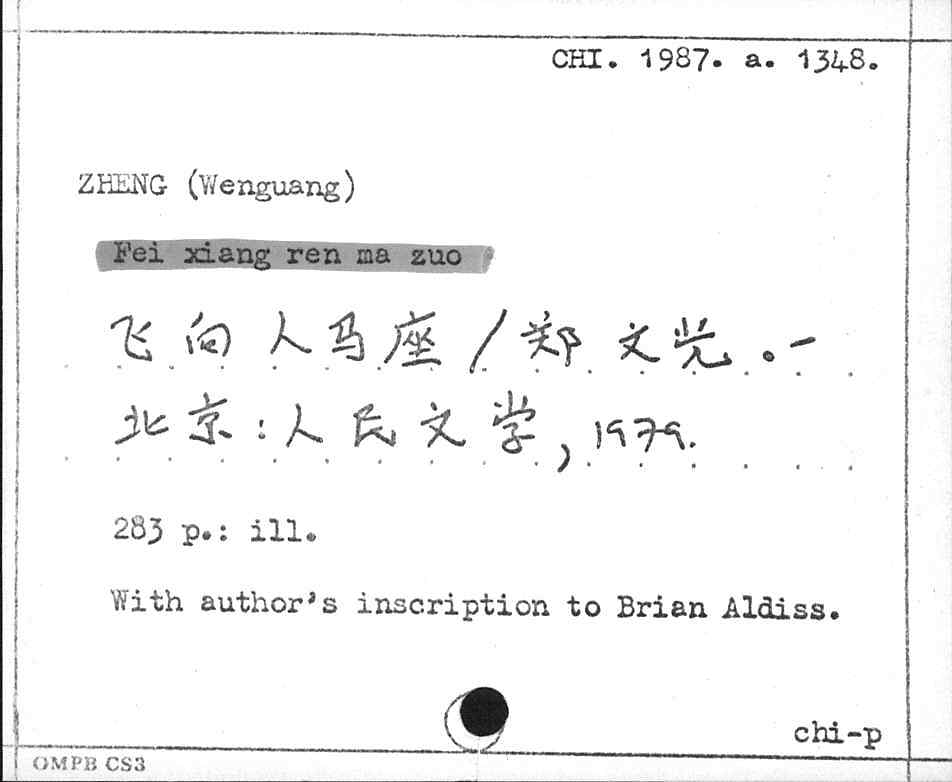 CHI. 1987. a. 1348.
ZHENG (Wenguang)
Fei xiang ren ma zuo
飞向人马座/郑文光.-
北京:人民文学,1979.
283 p.: ill.
With author's inscription to Brian Aldiss.
chi-p
OMPB CS3